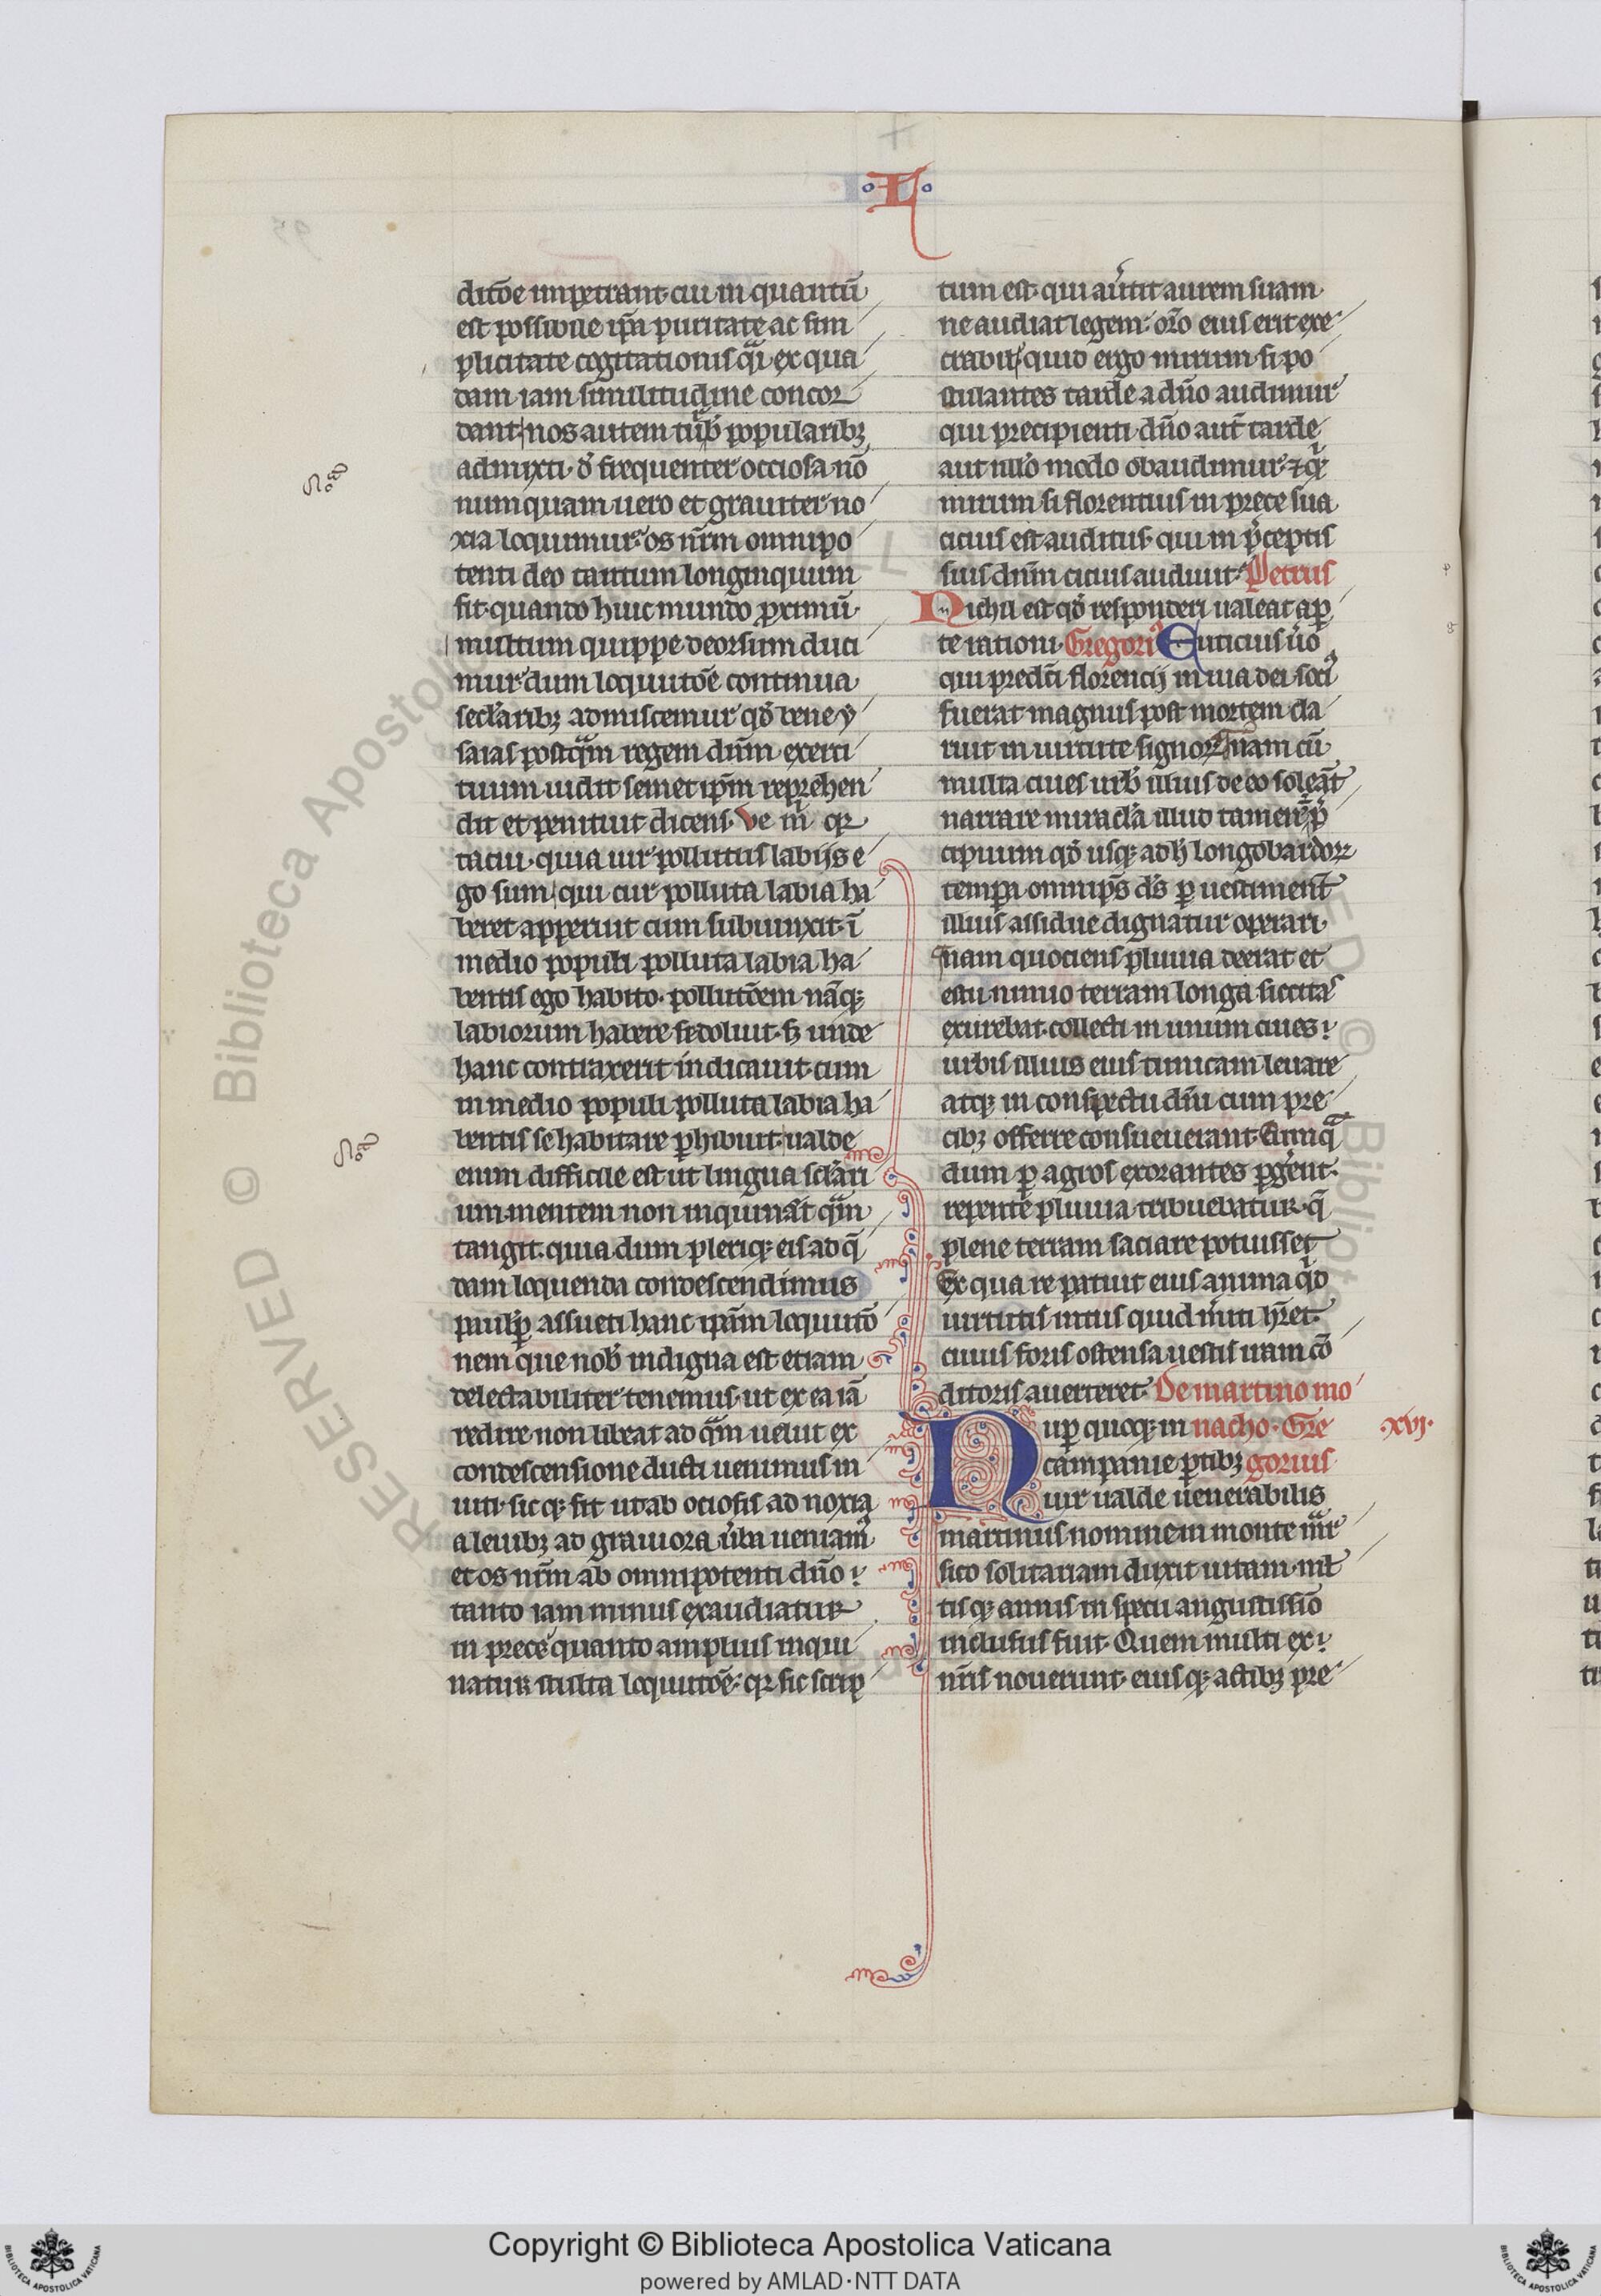 ·L·
ditõe impetrant· cui in quantũ
est possibile ip̃a puritate ac sim
plicitate cogitationis q̃i ex qua
dam iam similitudine concor
dant nos autem turb̃ popularibꝫ
admixti· dũ frequenter occiosa nõ
numquam uero et grauiter no
xia loquimur os nr̃m omnipo
tenti deo tantum longinquum
fit· quanto huic mundo ꝓximũ·
multum quippe deorsum duci
mur dum loqutõe continua
secl̃aribꝫ admiscemur qđ bene y
saias postq̃m regem dñm exerci
tuum uidit semet ip̃m reprehen
dit et penituit dicens· Ve m̃ qꝛ
tacui· quia uir pollutus labijs e
go sum, qui cur polluta labia ha
beret apperuit cum subiunxit· ĩ
medio populi polluta labia ha
bentis ego habito· pollutõem nãqꝫ
labiorum habere se doluit· sꝫ unde
hanc contraxerit indicauit· cum
in medio populi polluta labia ha
bentis se habitare ꝑhibuit ualde
enim difficile est ut lingua sclãri
um mentem non inquinet q̃m
tangit· quia dum plerumqꝫ eis ad q̃
dam loquenda condescendimus
paulup̱ assueti hanc ip̃am loqutõ
nem que nob̃ indigna est etiam
delectabiliter tenemus· ut ex ea iã
redire non libeat ad q̃m uelut ex
condescensione ducti uenimus in
uiti· sicqꝫ fit ut ab ociosis ad noxia
a leuibꝫ ad grauiora u̾ba ueniam᷒
et os nr̃m ab omnipotenti dño
tanto iam minus exaudiatur
in prece quanto amplius inqui
natur stulta loqutõe· qꝛ sic scrip
tum est· qui auertit aurem suam
ne audiat legem· or̃o eius erit exe
crabil̃ quid ergo mirum si po
stulantes tarde a dño audimur
qui precipienti dño aut tarde
aut nullo modo obaudimur· ⁊ q̇
mirum si florentius in prece sua
citius est auditus· qui in p̾ceptis
suis dñm citius audiuit· Petrus
Nichil est qđ responderi ualeat aꝑ
te rationi· Gregori᷒ Euticius u̾o
qui predc̃i florencij in uia dei soci᷒
fuerat magnus post mortem cla
ruit in uirtute signoꝝ nam cũ
multa ciues urb̃ illius de eo soleãt
narrare miracl̃a illud tamen ẽ p̾
cipuum qđ usqꝫ ad h̾ longobardoꝝ
tempa omnip̃s d̃s ꝑ uestiment̃
illius assidue dignatur operari·
nam quociens pluuia deerat et
estu nimio terram longa siccitas
exurebat· collecti in unum ciues
urbis illius eius tunicam leuare
atqꝫ in conspectu dñi cum pre
cibꝫ offerre consueuerant· Cum q̃
dum ꝑ agros exorantes ꝑgẽnt·
repente pluuia tribuebatur· q̃
plene terram saciare potuisset
Ex qua re patuit eius anima qͥd
uirtutis intus quid m̾iti h̾ret·
cuius foris ostensa uestis iram cõ
ditoris auerteret· De martino mo
Nuꝑ quoqꝫ in nacho· Gre ·xvj·
campanie ꝑtibꝫ gorius
uir ualde uenerabilis
martinus nomine in monte m̃r
sico solitariam duxit uitam· ml̃
tisqꝫ annis in specu angustissĩo
inclusus fuit· Quem multi ex
nr̃is nouerunt· eiusqꝫ actibꝫ pre
Copyright © Biblioteca Apostolica Vaticana
powered by AMLAD·NTT DATA